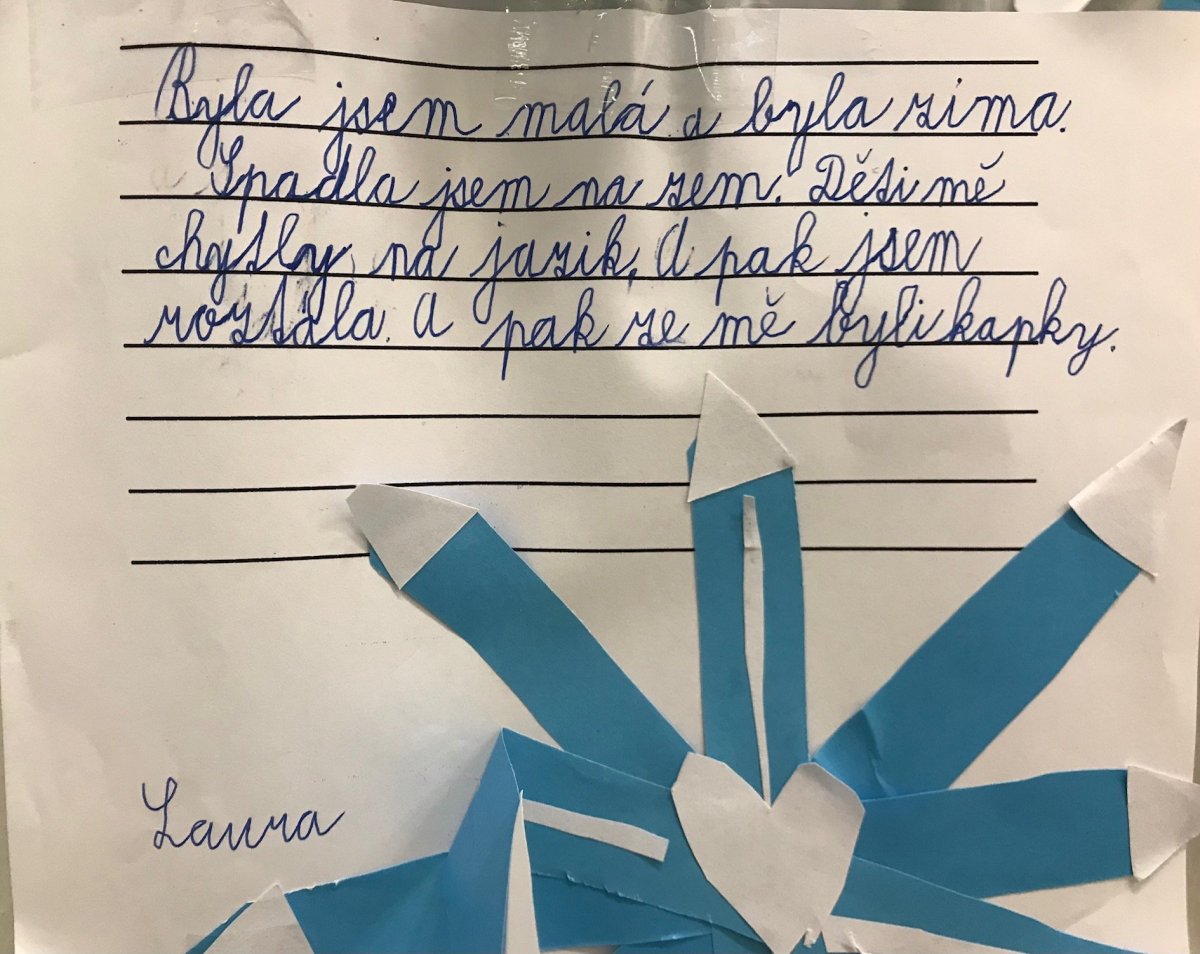 Byla jsem malá a byla zima.
Spadla jsem na zem. Děti mě
chytly na jazik, A pak jsem
roztála. A pak ze mě byli kapky.
Laura